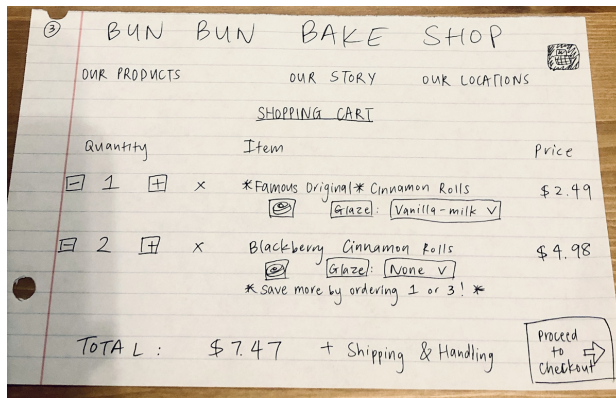 3
BUN BUN BAKE SHOP
OUR PRODUCTS OUR STORY OUR LOCATIONS
SHOPPING CART
Quantity Item Price
- 1 + x *Famous Original* Cinnamon Rolls $2.49
Glaze: Vanilla-milk V
= 2 + x Blackberry Cinnamon Rolls $4.98
Glaze: None V
*Save more by ordering 1 or 3! *
TOTAL: $7.47 + Shipping & Handling
Proceed
to
Checkout